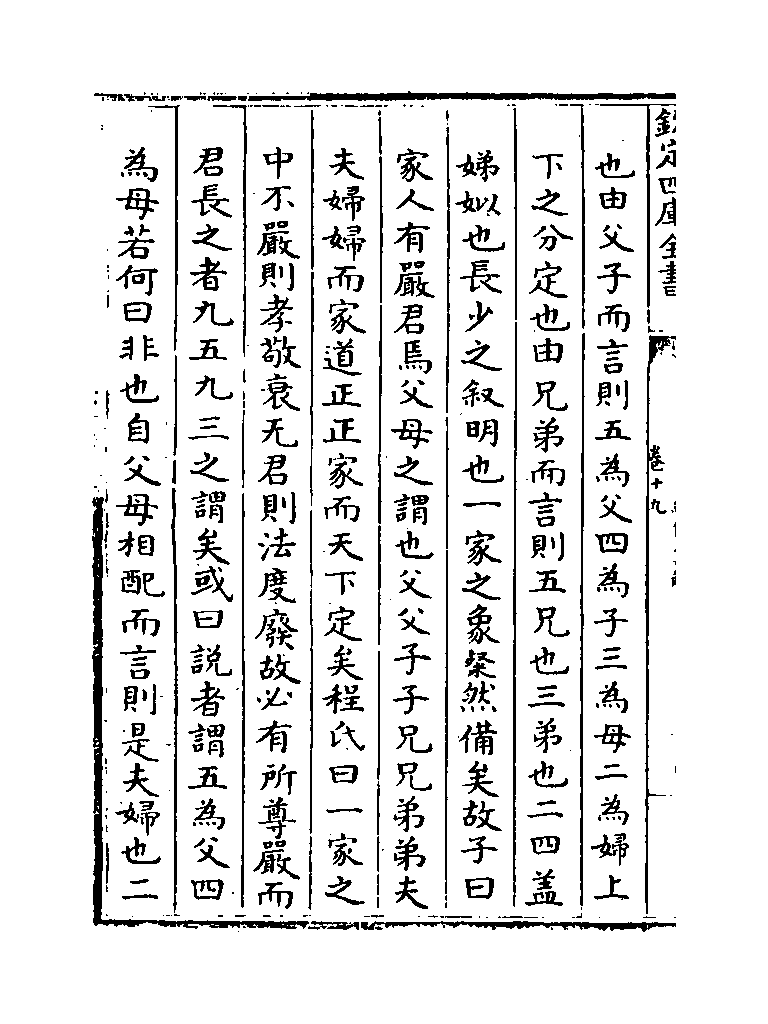 欽定四庫全書
卷十九
也由父子而言則五為父四為子三為母二為婦上
下之分定也由兄弟而言則五兄也三弟也二四蓋
娣姒也長少之叙明也一家之象粲然備矣故子曰
家人有嚴君焉父母之謂也父父子子兄兄弟弟夫
夫婦婦而家道正正家而天下定矣程氏曰一家之
中不嚴則孝敬衰无君則法度廢故必有所尊嚴而
君長之者九五九三之謂矣或曰説者謂五為父四
為母若何曰非也自父母相配而言則是夫婦也二